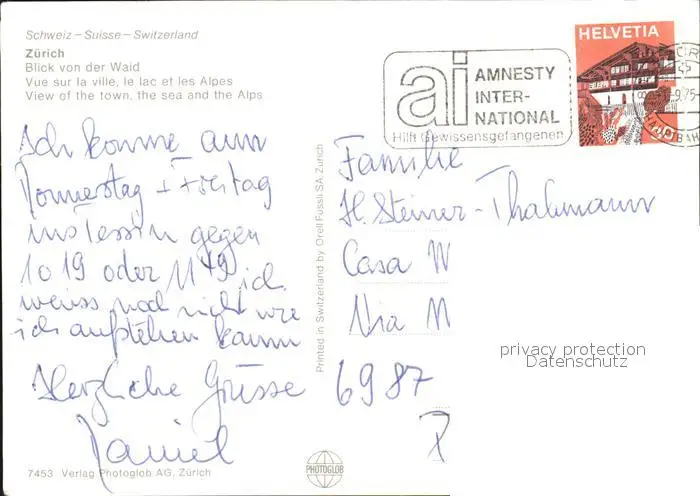 Schweiz – Suisse – Switzerland
Zürich
Blick von der Waid
Vue sur la ville, le lac et les Alpes
View of the town, the sea and the Alps
ai AMNESTY
INTER-
NATIONAL
Hilft Gewissensgefangenen
HELVETIA
40
-9.75
Ich komme am
Donnerstag + Freitag
ins Tessin gegen
10 19 oder 11 49, ich
weiss noch nicht wie
ich aufstehen kann
Herzliche Grüsse
Daniel
Printed in Switzerland by Orell Füssli SA, Zürich
Familie
H. Steiner-Thalmann
Casa
Via
6987
privacy protection
Datenschutz
7453 Verlag Photoglob AG, Zürich
PHOTOGLOB